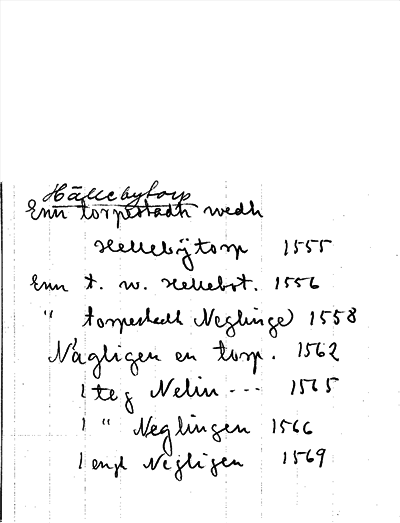 Hällebytorp
Enn torpestadh wedh
Hellebÿtorp 1555
Enn t. w. Hellebot. 1556
" torpestadh Neglinge) 1558
Nägligen en torp. 1562
1 teg Nelin --- 1565
1 " Neglingen 1566
1 engl Negligen 1569